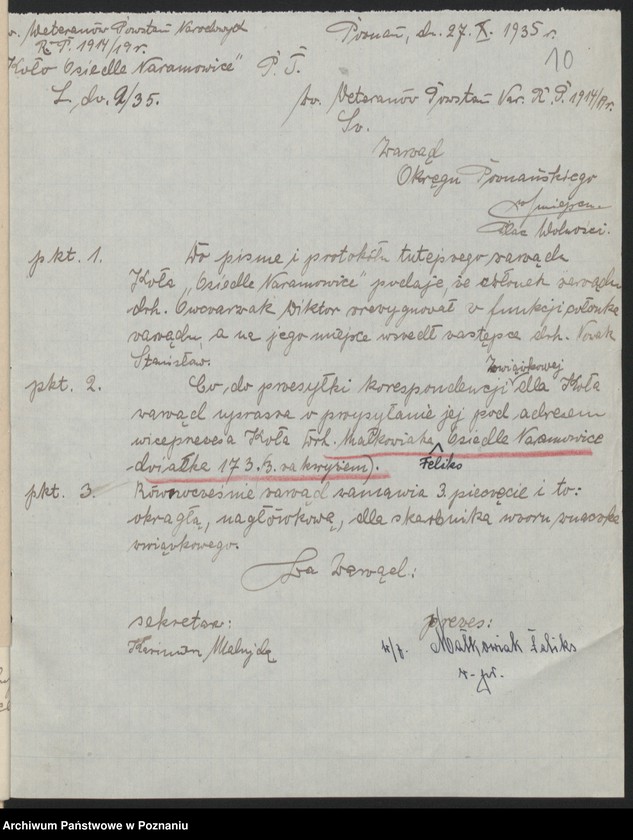 w. Weteranów Powstań Narodowych
R. P. 1914/19 r.
Koło Osiedle Naramowice" P. T.
L. dv. 2/35.
Poznań, dn. 27. X. 1935 r.
10
Zw. Weteranów Powstań Nar. R. P. 1914/19 r.
Zarząd
Okręgu Poznańskiego
w/miejscu
Plac Wolności.
pkt. 1. Do pisma i protokółu tutejszego zarządu
Koła „Osiedle Naramowice" podaje, że członek zarządu
drh. Wiktor zrezygnował z funkcji członka
zarządu, a na jego miejsce wszedł zastępca drh. Nowak
Stanisław.
pkt. 2. Co do przesyłki korespondencji Związkowej dla Koła
zarząd uprasza o przysyłanie jej pod adresem
wiceprezesa Koła drh. Małkowiaka Feliks Osiedle Naramowice
działka 173. B. za krzyżem).
pkt. 3. Równocześnie zarząd zamawia 3. pieczęcie i to:
okrągłą, nagłówkową, dla skarbnika wzoru
związkowego.
Za Zarząd:
sekretarz:
prezes:
w/z. Małkowiak Feliks
Archiwum Państwowe w Poznaniu